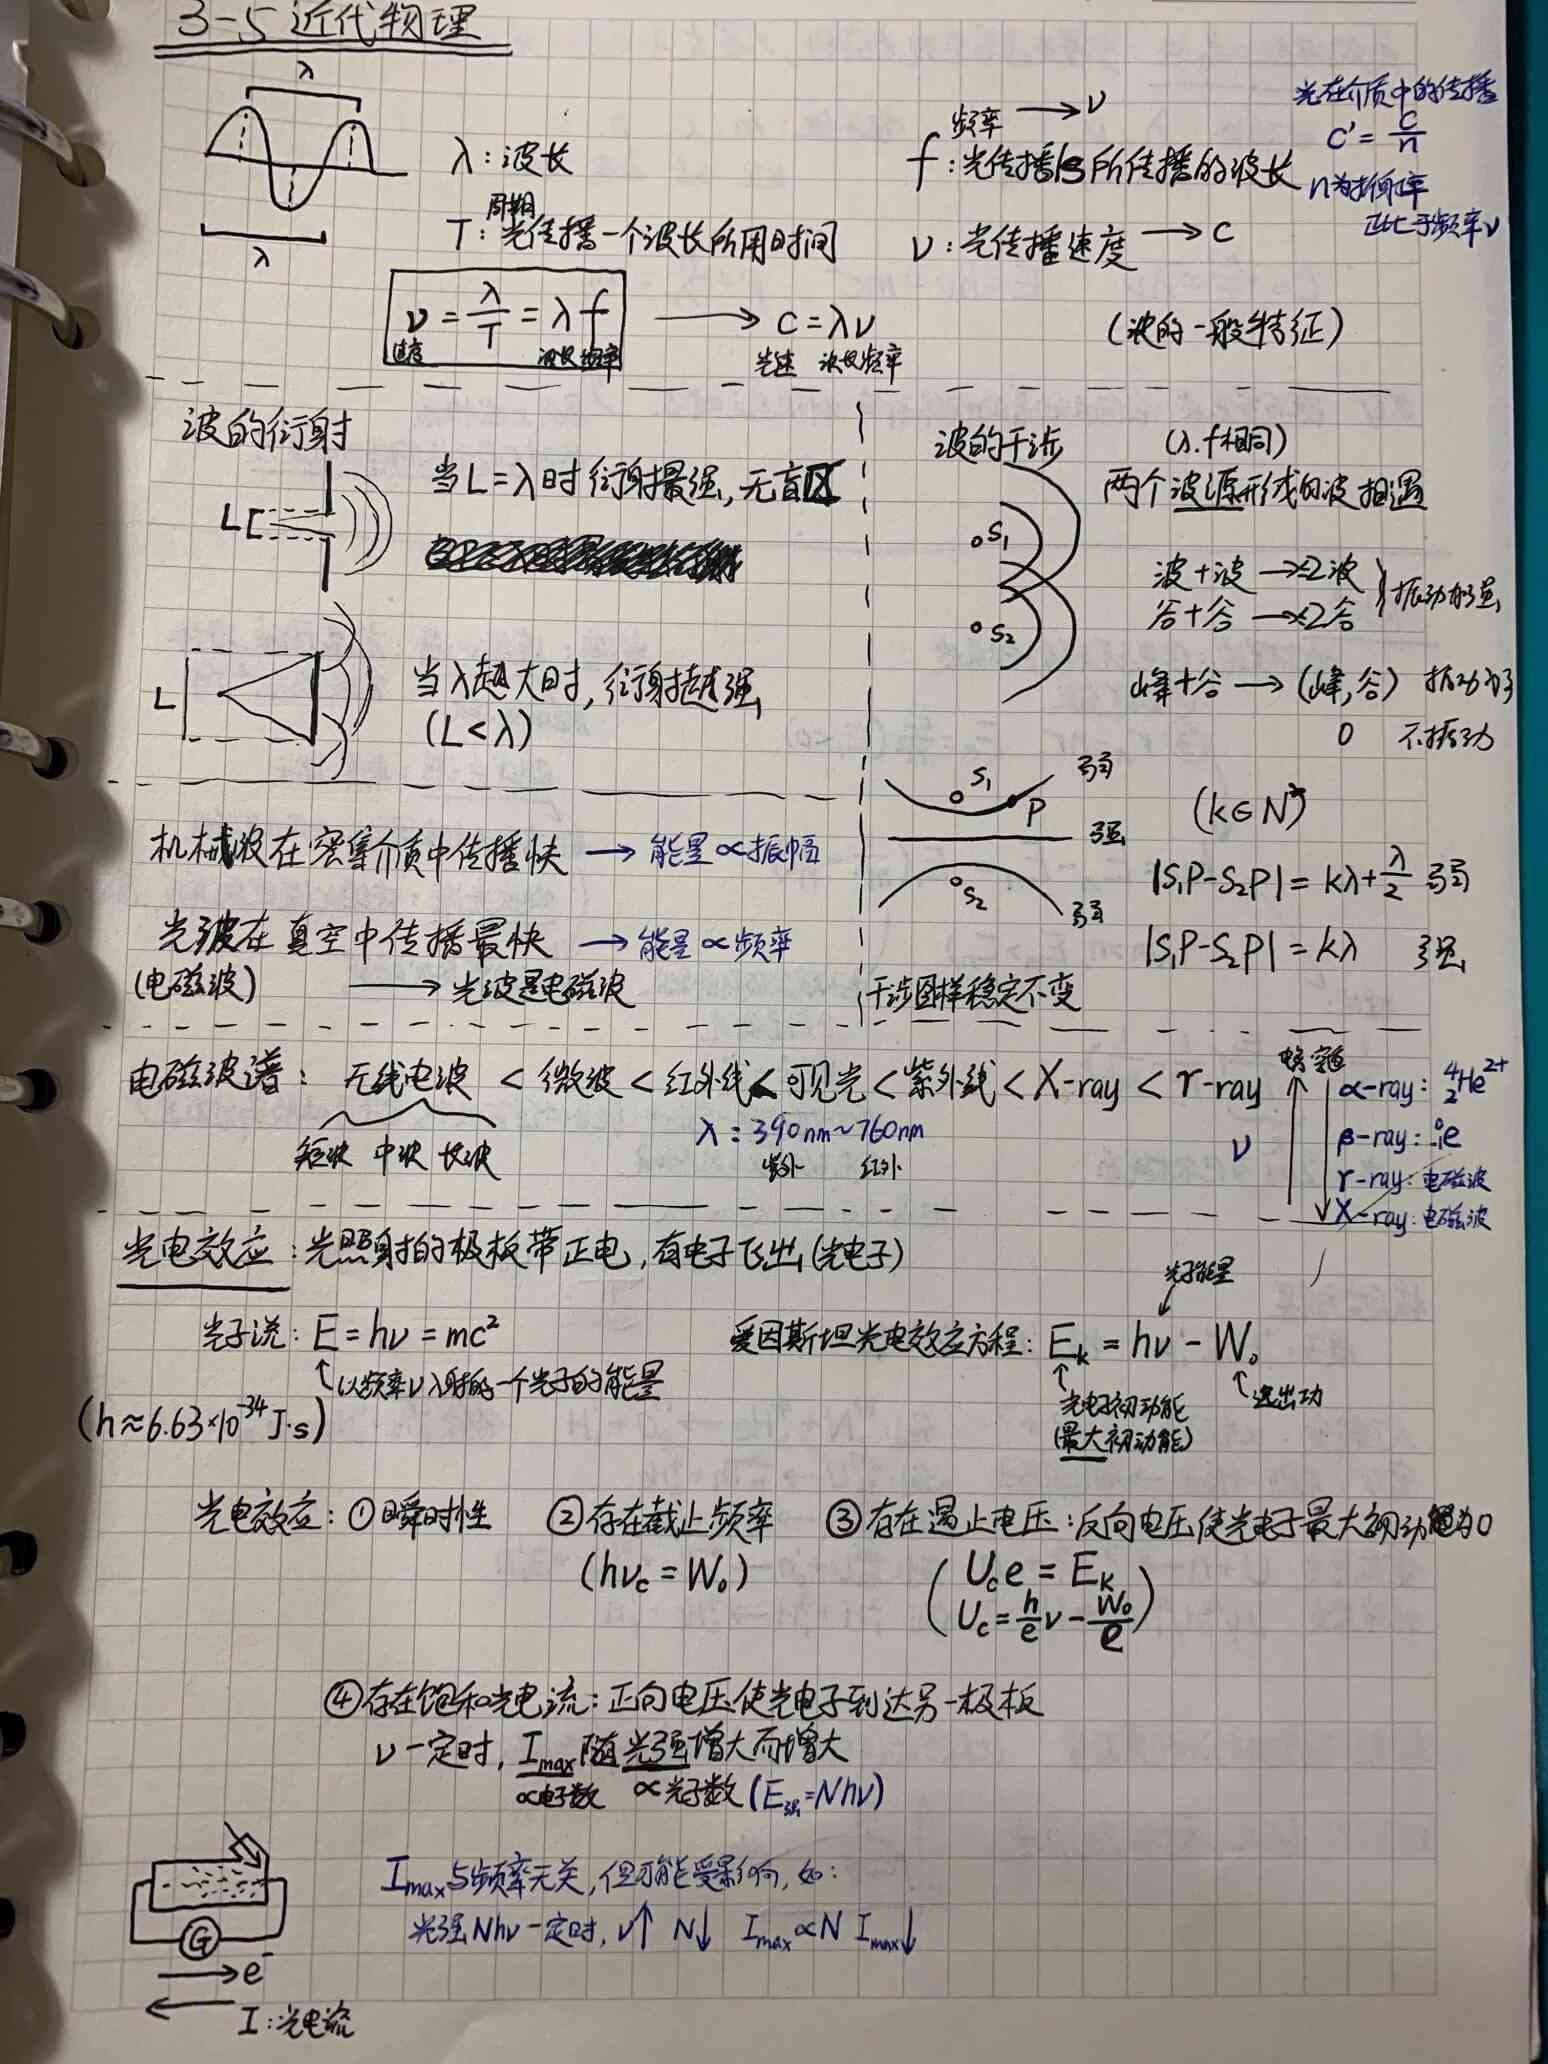 3-5 近代物理
λ
λ
λ：波长
周期
T：光传播一个波长所用时间
频率 → ν
f：光传播1s所传播的波长
ν：光传播速度 → c
光在介质中的传播
c' = c/n
n为折射率
正比于频率ν
ν = λ/T = λf → c = λν
速度 波长 频率 光速 波长 频率
(波的一般特征)
波的衍射
L
当L=λ时衍射最强，无盲区
L
当λ越大时，衍射越强
(L<λ)
波的干涉 (λ.f相同)
两个波源形成的波相遇
S₁
S₂
波+波 → 2波
谷+谷 → 2谷
振动加强
峰+谷 → (峰,谷) 振动
0 不振动
S₁ P 弱
强
S₂ 弱
(k∈N*)
|S₁P-S₂P| = kλ+λ/2 弱
|S₁P-S₂P| = kλ 强
干涉图样稳定不变
机械波在 介质中传播快 → 能量∝振幅
光波在真空中传播最快 → 能量∝频率
(电磁波) → 光波是电磁波
电磁波谱：无线电波 < 微波 < 红外线 < 可见光 < 紫外线 < X-ray < γ-ray
短波 中波 长波
λ：390nm~760nm
紫外 红外
ν
α-ray：⁴₂He²⁺
β-ray：⁰₋₁e
γ-ray：电磁波
X-ray：电磁波
光电效应：光照射的极板带正电，有电子飞出(光电子)
光子说：E=hν=mc²
以频率ν入射的一个光子的能量
(h≈6.63×10⁻³⁴J·s)
光子能量
爱因斯坦光电效应方程：Eₖ=hν-W₀
光电子初动能
(最大初动能)
逸出功
光电效应：①瞬时性 ②存在截止频率 ③存在遏止电压：反向电压使光电子最大初动能为0
(hνc=W₀)
(Uc e = Eₖ
Uc = h/e ν - W₀/e)
④存在饱和光电流：正向电压使光电子到达另一极板
ν一定时，Imax随光强增大而增大
∝电子数 ∝光子数(E强=Nhν)
Imax与频率无关，但可能受影响，如：
光强Nhν一定时，ν↑ N↓ Imax∝N Imax↓
G
→e⁻
I：光电流